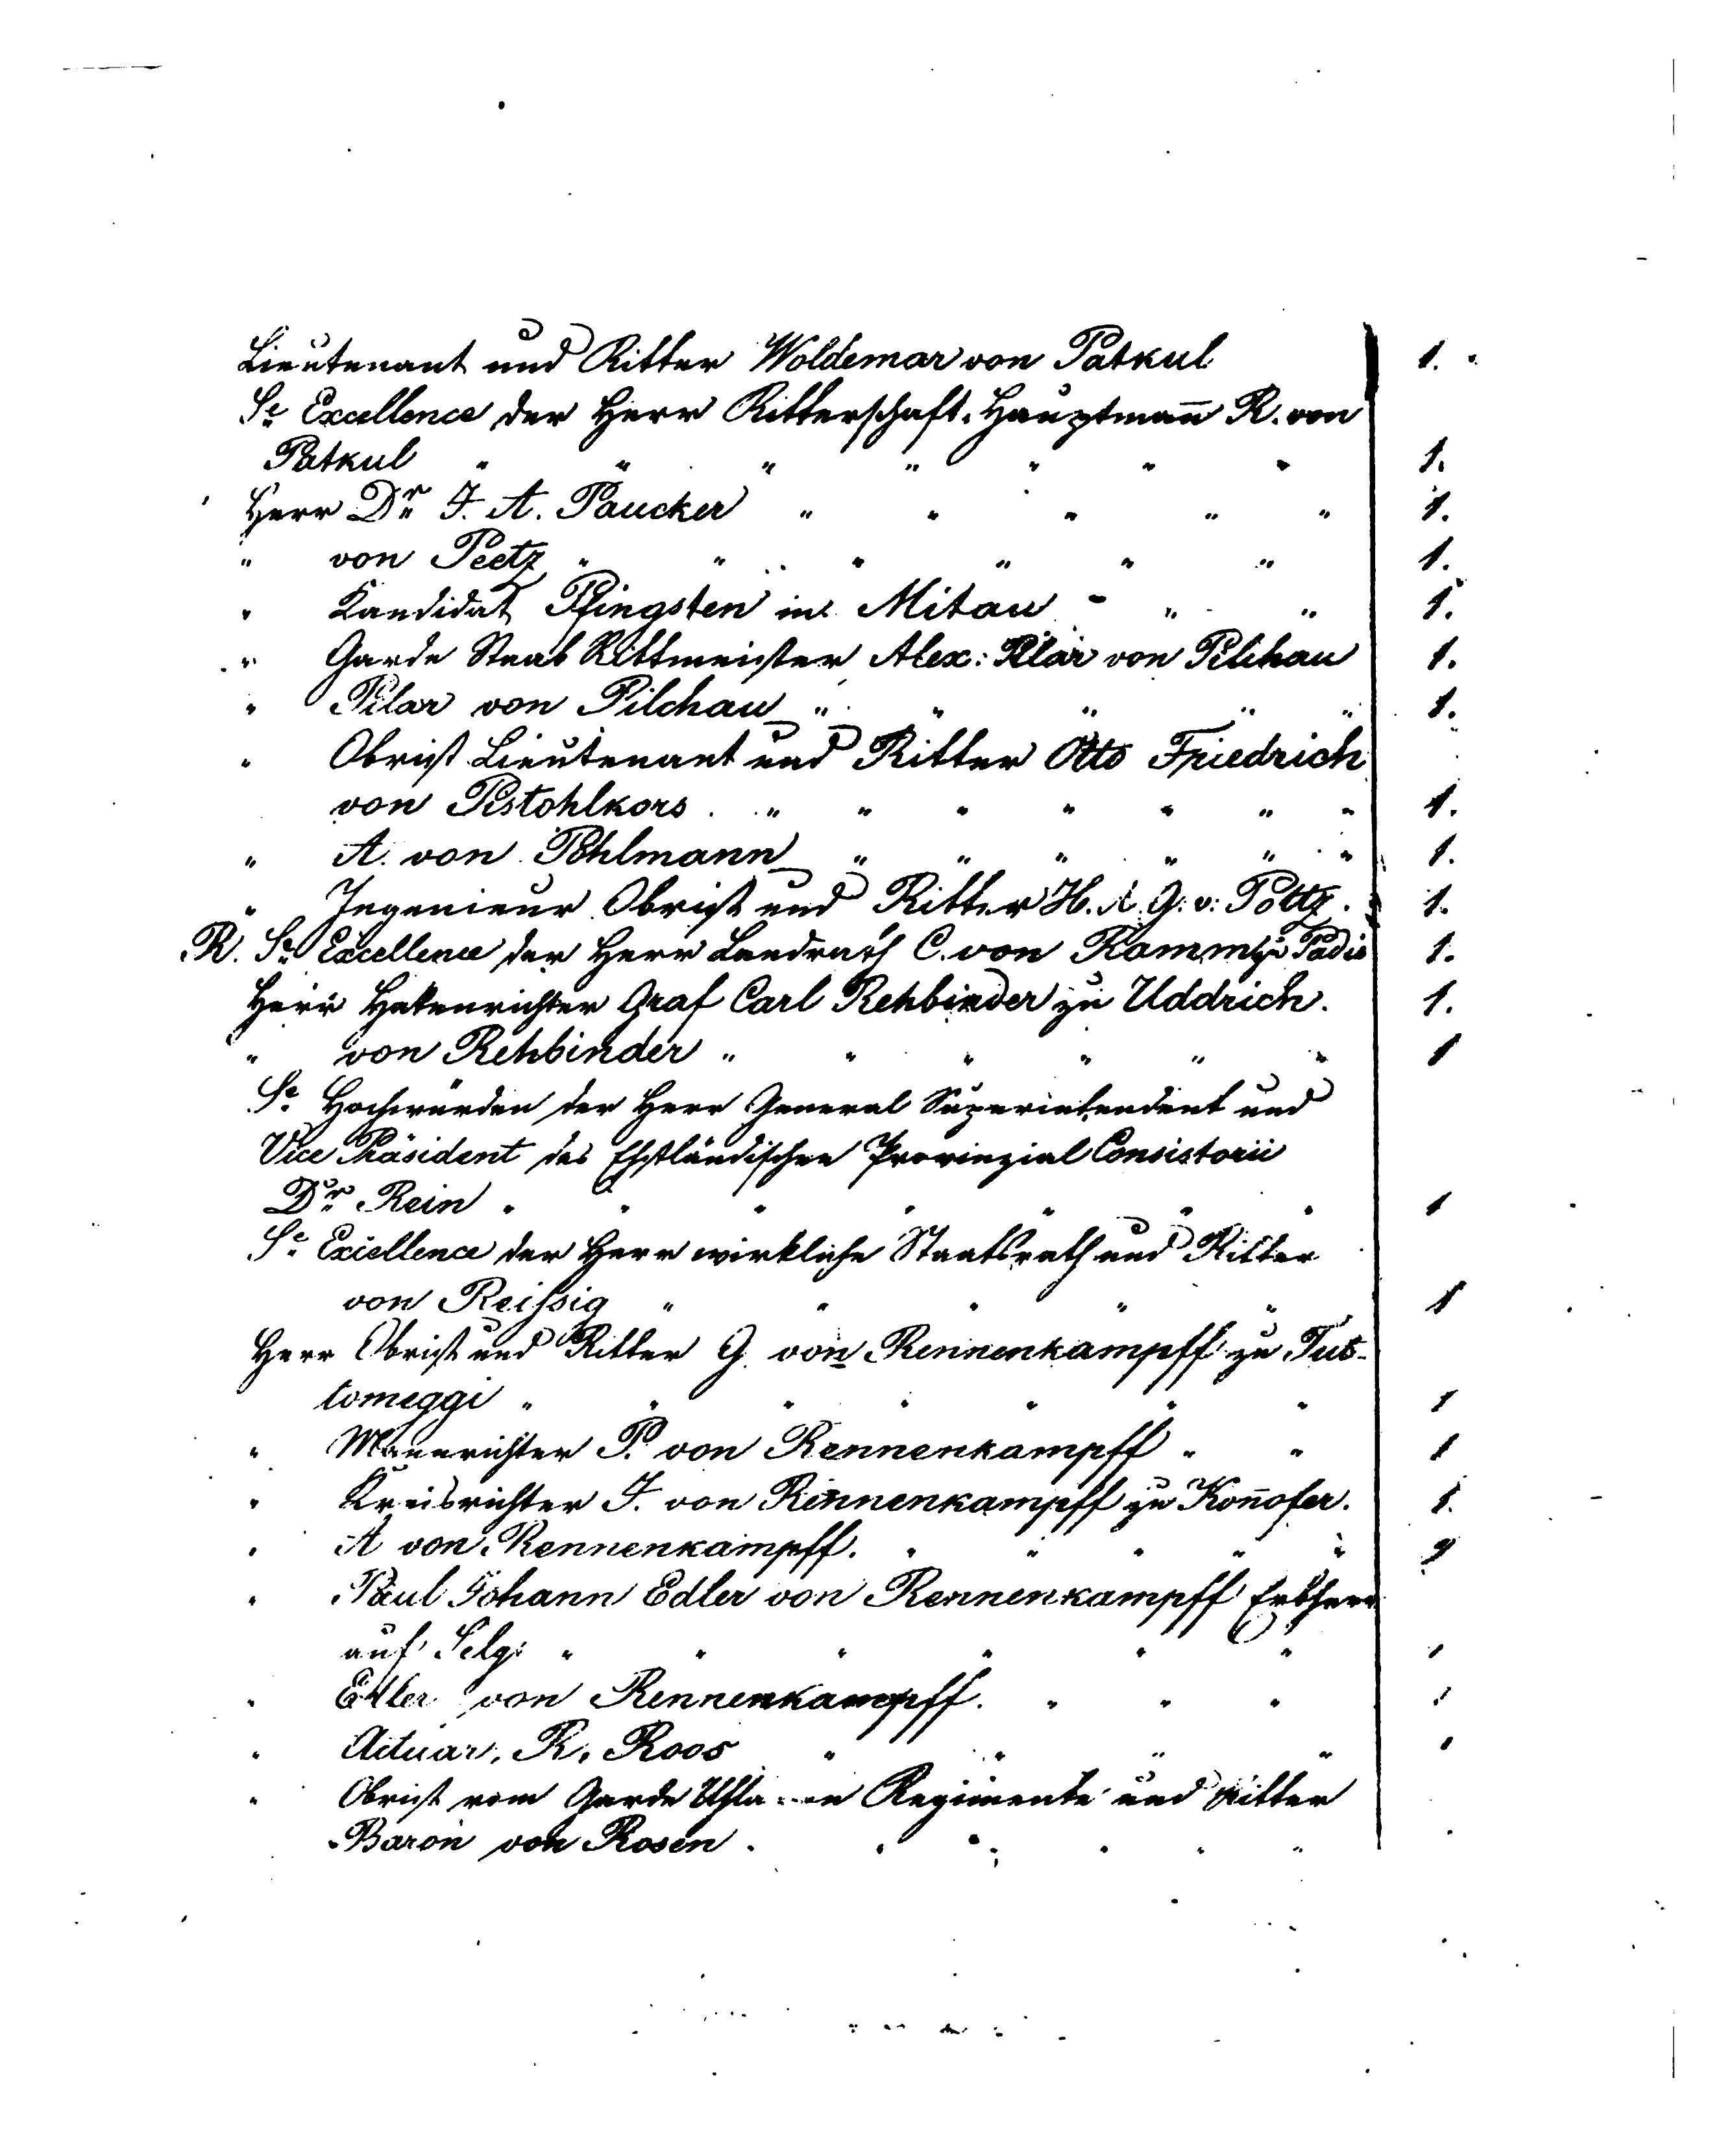 Lieutenant und Ritter Woldemar von Patkul 1.
Se Excellence der Herr Ritterschaft-Hauptmann̄ R. von
Patkul " " " " " " " 1.
Herr Dr J. A. Paucker " " " " " 1.
" von Peetz " " " " " " 1.
" Kandidat Pfingsten in Mitau - " " 1.
" Garde Staab Rittmeister Alex: Pilar von Pilchau 1.
" Pilar von Pilchau " " " " " 1.
" Obrist Lieutenant und Ritter Otto Friedrich
von Pistohlkors " " " " " " " 1.
" A. von Pohlmann " " " " " " 1.
" Ingenieur Obrist und Ritter H. A. G. v: Pottz. 1.
R. Se Excellence der Herr Landrath C. von Ramm zu Padis 1.
Herr Hakenrichter Graf Carl Rehbinder zu Uddrich. 1.
" von Rehbinder " " " " " " 1
Se Hochwürden der Herr General Superintendent und
Vice Präsident des Ehstländischen Provinzial Consistorii
Dr Rein " " " " " " " 1
Se Excellence der Herr wirkliche Staatsrath und Ritter
von Reissig " " " " " 1
Herr Obrist und Ritter G. von Rennenkampff zu Tut-
tomeggi " " " " " " " 1
" Mannrichter P. von Rennenkampff " " 1
" Kreisrichter J. von Rennenkampff zu Kon̄ofer. 1.
" A von Rennenkampff. " " " " "
" Paul Johann Edler von Rennenkampff Erbherr
auf Selgs " " " " " " 1
" Edler von Rennenkampff. " " " 1
" Actuar, R. Roos " " " " 1
" Obrist vom Garde Uhlanen Regimente und Ritter
Baron von Rosen. " " " " "